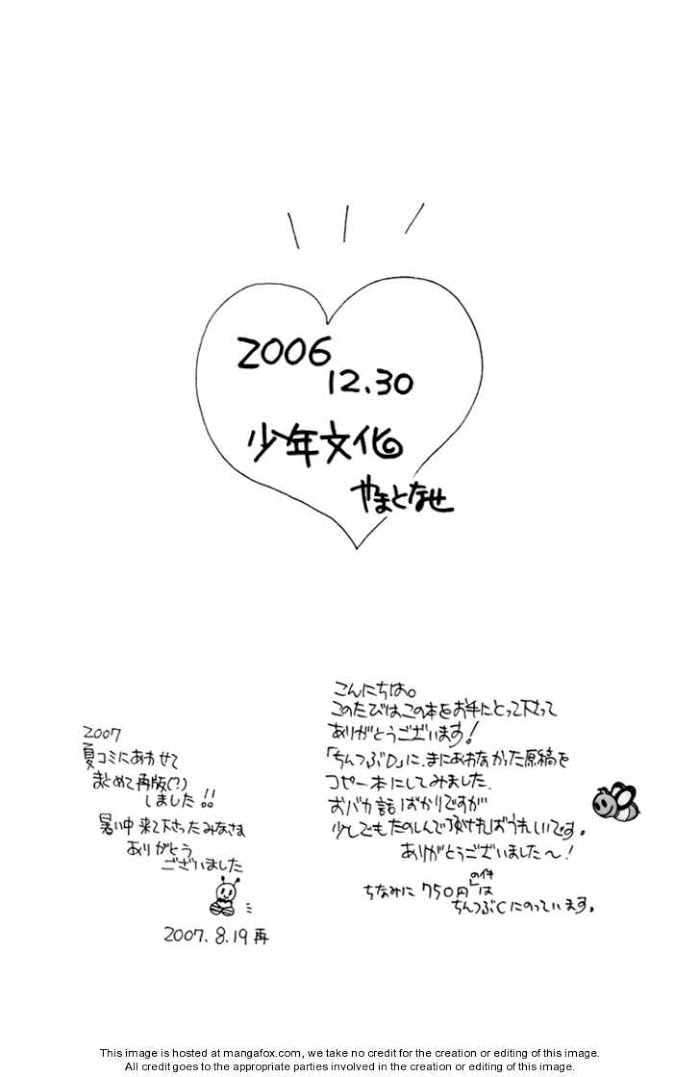 2006
12.30
少年文化
やまとなせ
こんにちは。
このたびはこの本をお手にとって下さって
ありがとうございます!
「ちんつぶD」に、まにあわなかった原稿を
コピー本にしてみました。
おバカ話ばかりですが
少しでもたのしんで頂ければうれしいです。
ありがとうございました〜!
ちなみに750円の件」は
ちんつぶCにのっています。
2007
夏コミにあわせて
まとめて再版(?)
しました!!
暑い中来て下さったみなさま
ありがとう
ございました
2007.8.19 再
This image is hosted at mangafox.com, we take no credit for the creation or editing of this image.
All credit goes to the appropriate parties involved in the creation or editing of this image.